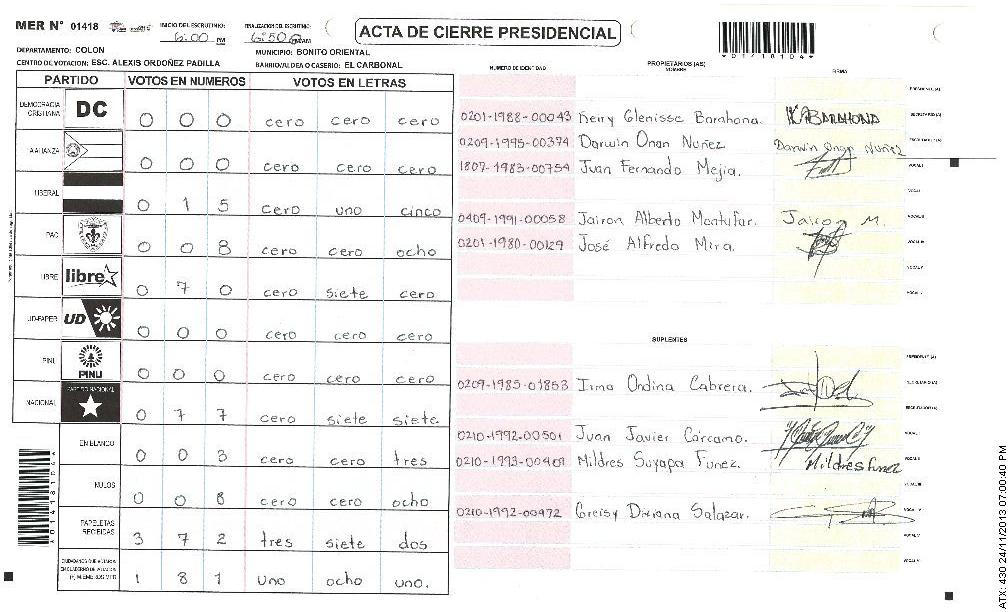 MER N° 01418
INICIO DEL ESCRUTINIO: 6:00 PM
FINALIZACION DEL ESCRUTINIO: 6:50 PM
ACTA DE CIERRE PRESIDENCIAL
*01418104*
DEPARTAMENTO: COLON
MUNICIPIO: BONITO ORIENTAL
CENTRO DE VOTACION: ESC. ALEXIS ORDOÑEZ PADILLA
BARRIO/ALDEA O CASERIO: EL CARBONAL
PARTIDO VOTOS EN NUMEROS VOTOS EN LETRAS
DEMOCRACIA CRISTIANA DC 0 0 0 cero cero cero
ALIANZA 0 0 0 cero cero cero
LIBERAL 0 1 5 cero uno cinco
PAC 0 0 8 cero cero ocho
LIBRE libre 0 7 0 cero siete cero
UD-FAPER UD 0 0 0 cero cero cero
PINU PINU 0 0 0 cero cero cero
NACIONAL PARTIDO NACIONAL 0 7 7 cero siete siete
EN BLANCO 0 0 3 cero cero tres
NULOS 0 0 8 cero cero ocho
PAPELETAS RECIBIDAS 3 7 2 tres siete dos
CIUDADANOS QUE VOTARON
EN CUADERNO DE VOTACION
(+) MIEMBROS MER 1 8 1 uno ocho uno.
*01418104*
NUMERO DE IDENTIDAD PROPIETARIOS (AS) NOMBRE FIRMA
PRESIDENTE (A)
0201-1988-00043 Keiry Glenisse Barahona. BARAHONA SECRETARIO (A)
0209-1995-00374 Darwin Onan Nuñez Darwin Onan Nuñez ESCRUTADOR (A)
1807-1983-00754 Juan Fernando Mejia. VOCAL I
VOCAL II
0409-1991-00058 Jairon Alberto Montufar. Jairon M. VOCAL III
0201-1980-00129 José Alfredo Mira. VOCAL IV
VOCAL V
SUPLENTES
PRESIDENTE (A)
0209-1985-01853 Irma Ondina Cabrera. SECRETARIO (A)
ESCRUTADOR (A)
0210-1992-00501 Juan Javier Cárcamo. VOCAL I
0210-1993-00409 Mildres Suyapa Funez. Mildres Funez VOCAL II
VOCAL III
0210-1992-00972 Greisy Dixiana Salazar. VOCAL IV
VOCAL V
ATX: 430 24/11/2013 07:00:40 PM